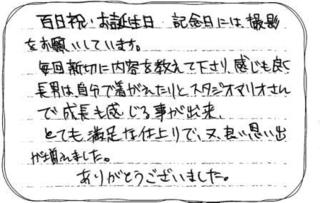 百日祝・お誕生日 記念日には、撮影
をお願いしています。
毎回親切に内容を教えて下さり、感じも良く
長男は、自分で着がえたりと、スタジオマリオさん
で成長も感じる事が出来、
とても満足な仕上りで、又、良い思い出
が増えました。
ありがとうございました。